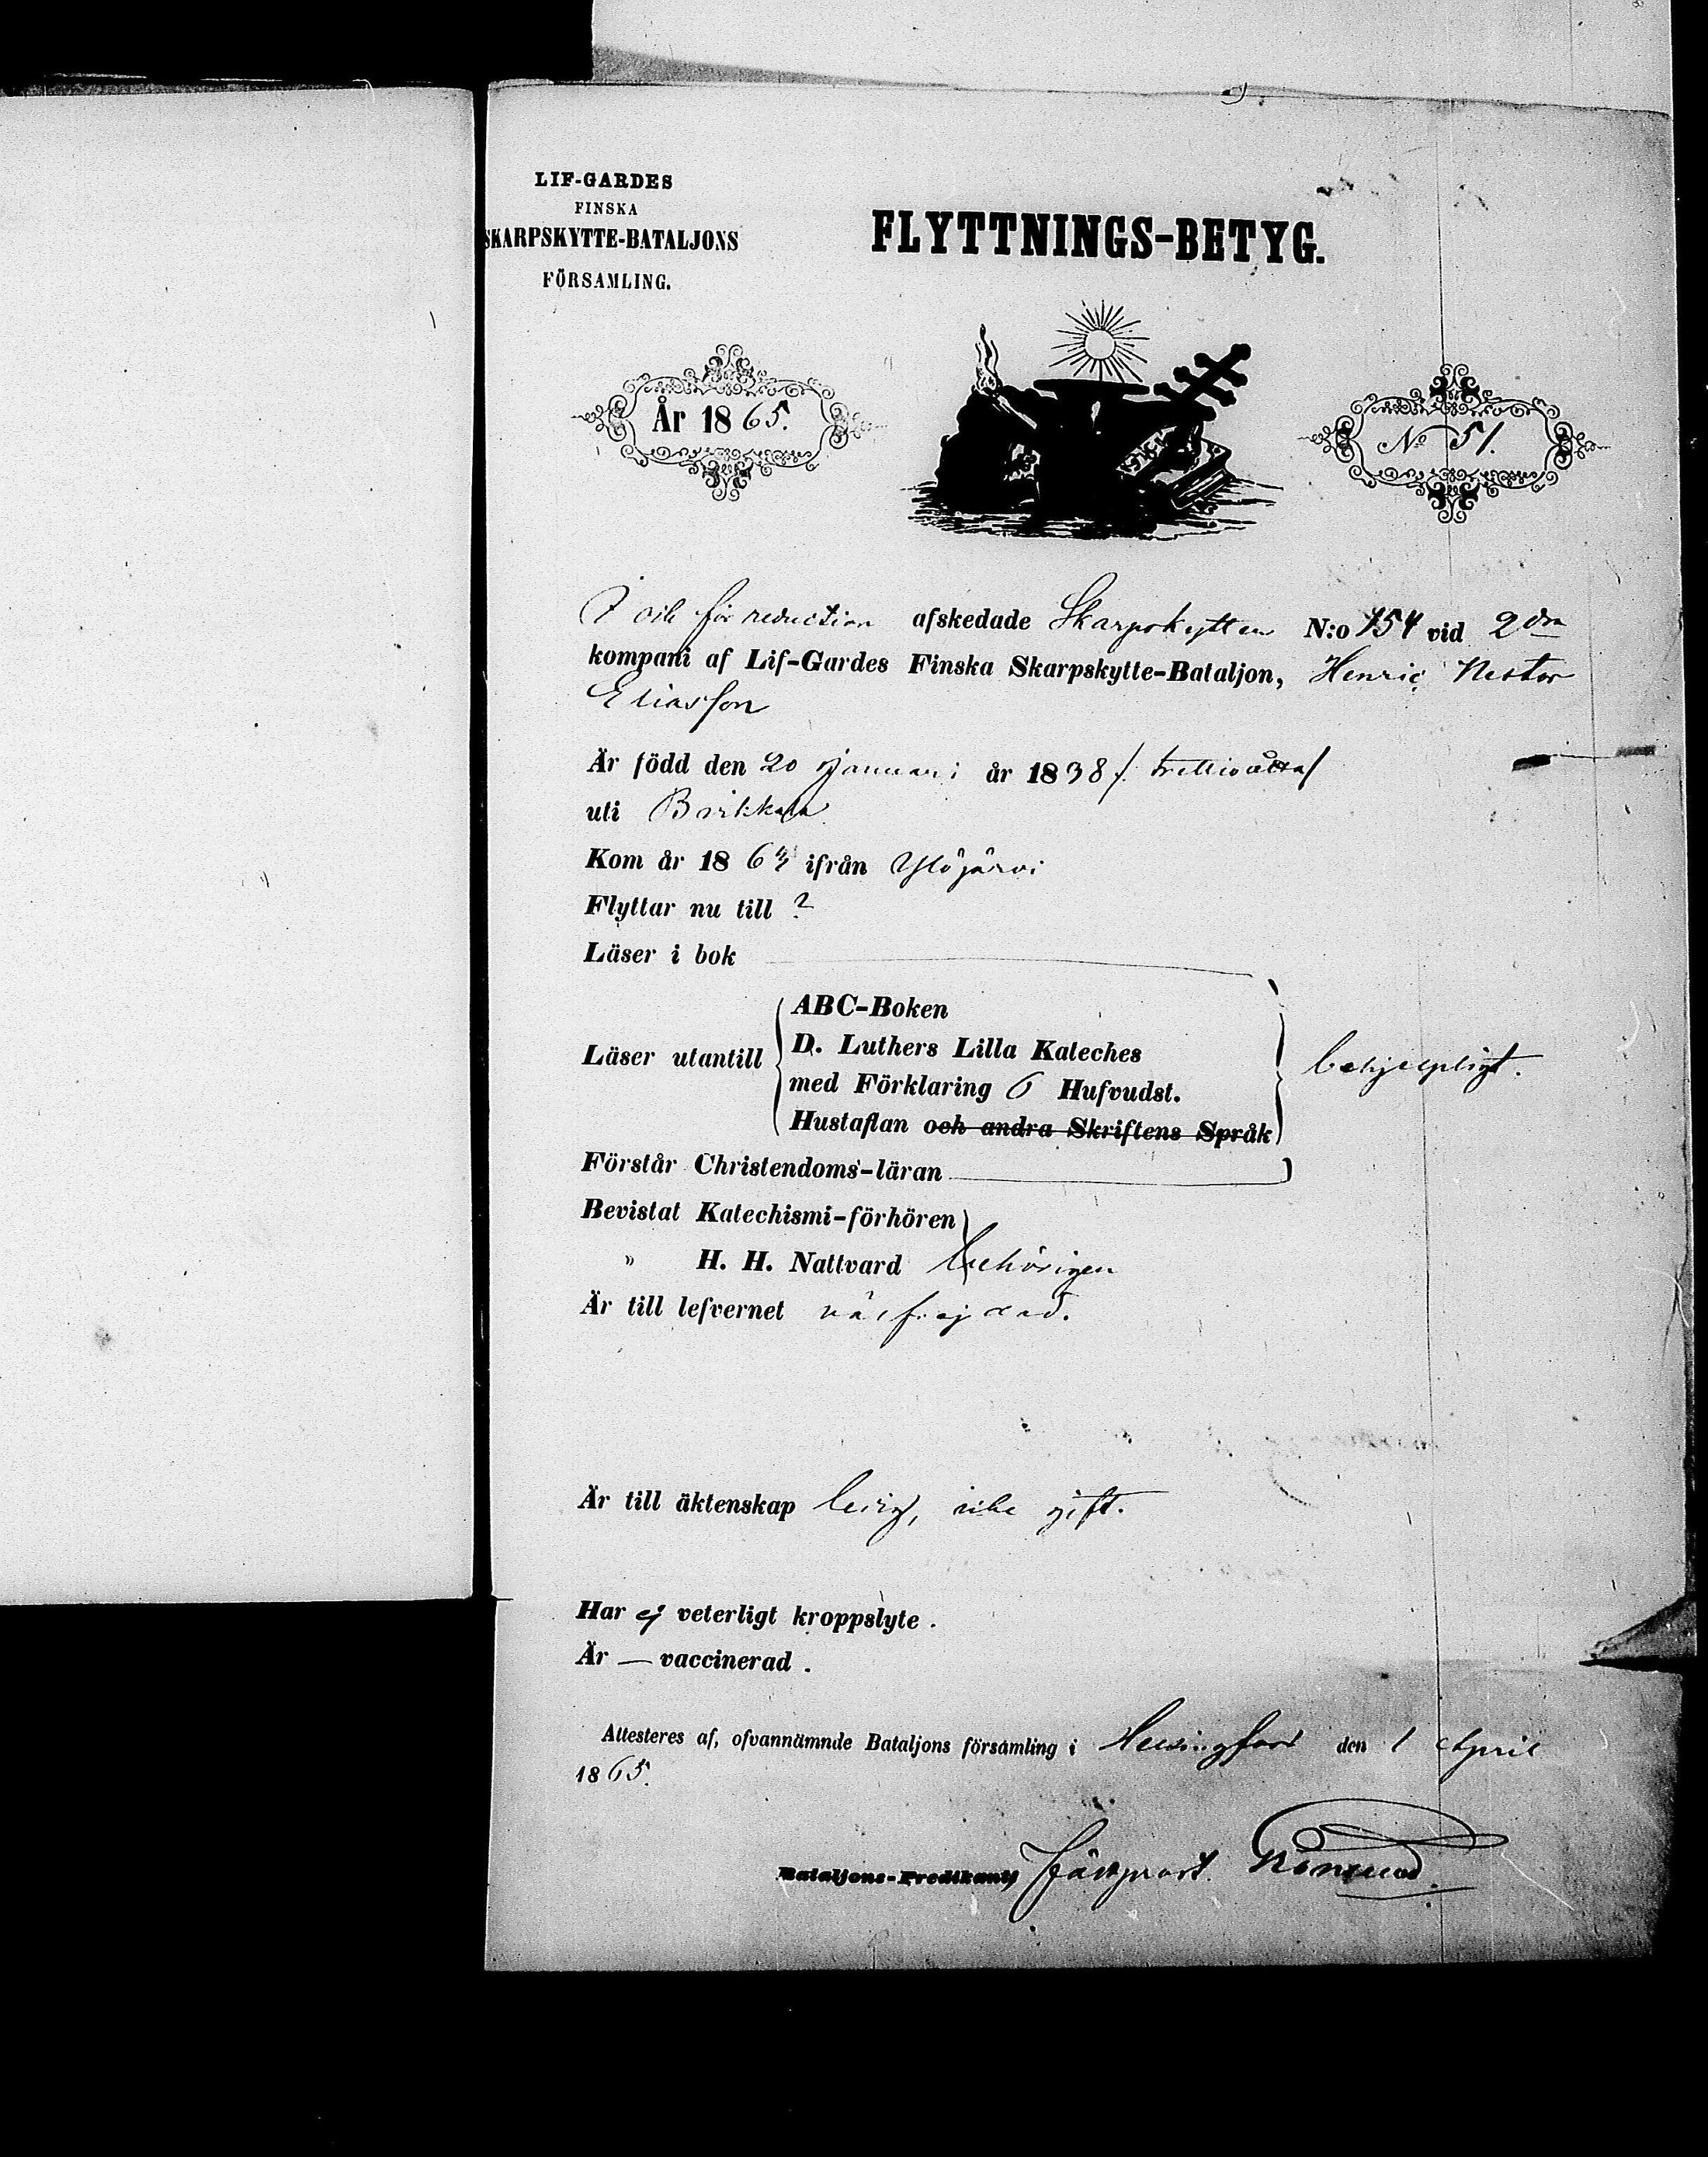 LIF-GARDES
FINSKA
SKARPSKYTTE-BATALJONS
FÖRSAMLING.
FLYTTNINGS-BETYG.
År 1865.
No 51.
för reduction afskedade Skarpskytten N:o 154 vid 2dra
kompani af Lif-Gardes Finska Skarpskytte-Bataljon, Henric Nestor
Eliasson
Är född den 20 Januari år 1838 /: trettioåtta/
uti Birkkala
Kom år 186 ifrån Ylöjärvi
Flyttar nu till ?
Läser i bok
Läser utantill
ABC-Boken
D. Luthers Lilla Kateches
med Förklaring 6 Hufvudst.
Hustaflan och andra Skriftens Språk
behjelpligt.
Förstår Christendoms-läran
Bevistat Katechismi-förhören
" H. H. Nattvard behörigen
Är till lefvernet välfrejdad.
Är till äktenskap ledig, icke gift.
Har ej veterligt kroppslyte.
Är — vaccinerad.
Attesteres af, ofvannämnde Bataljons församling i Helsingfors den 1 April
1865.
Bataljons-Predikant